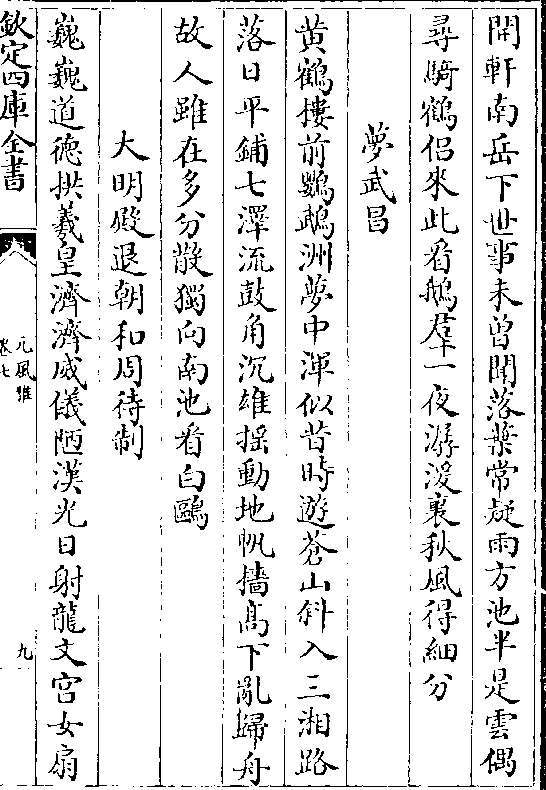 開軒南岳下世事未曾聞落葉常疑雨方池半是雲偶
尋騎鶴侣來此看鵝羣一夜潺湲裏秋風得細分
夢武昌
黄鶴樓前鸚鵡洲夢中渾似昔時遊蒼山斜入三湘路
落日平鋪七澤流鼓角沉雄摇動地帆檣髙下亂歸舟
故人雖在多分散獨向南池看白鷗
大明殿退朝和周待制
巍巍道徳拱羲皇濟濟威儀陋漢光日射龍文宫女扇
欽定四庫全書
元風雅
卷七
九